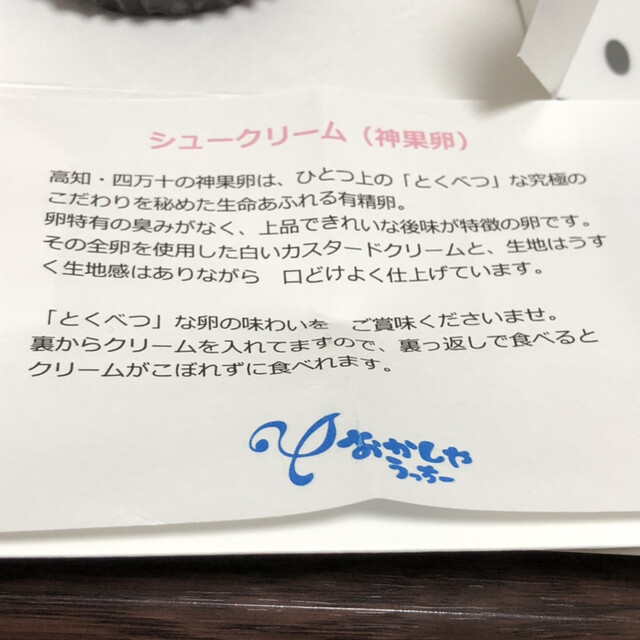 シュークリーム（神果卵）
高知・四万十の神果卵は、ひとつ上の「とくべつ」な究極の
こだわりを秘めた生命あふれる有精卵。
卵特有の臭みがなく、上品できれいな後味が特徴の卵です。
その全卵を使用した白いカスタードクリームと、生地はうす
く生地感はありながら　口どけよく仕上げています。
「とくべつ」な卵の味わいを　ご賞味くださいませ。
裏からクリームを入れてますので、裏っ返しで食べると
クリームがこぼれずに食べれます。
なかしや
うっちー